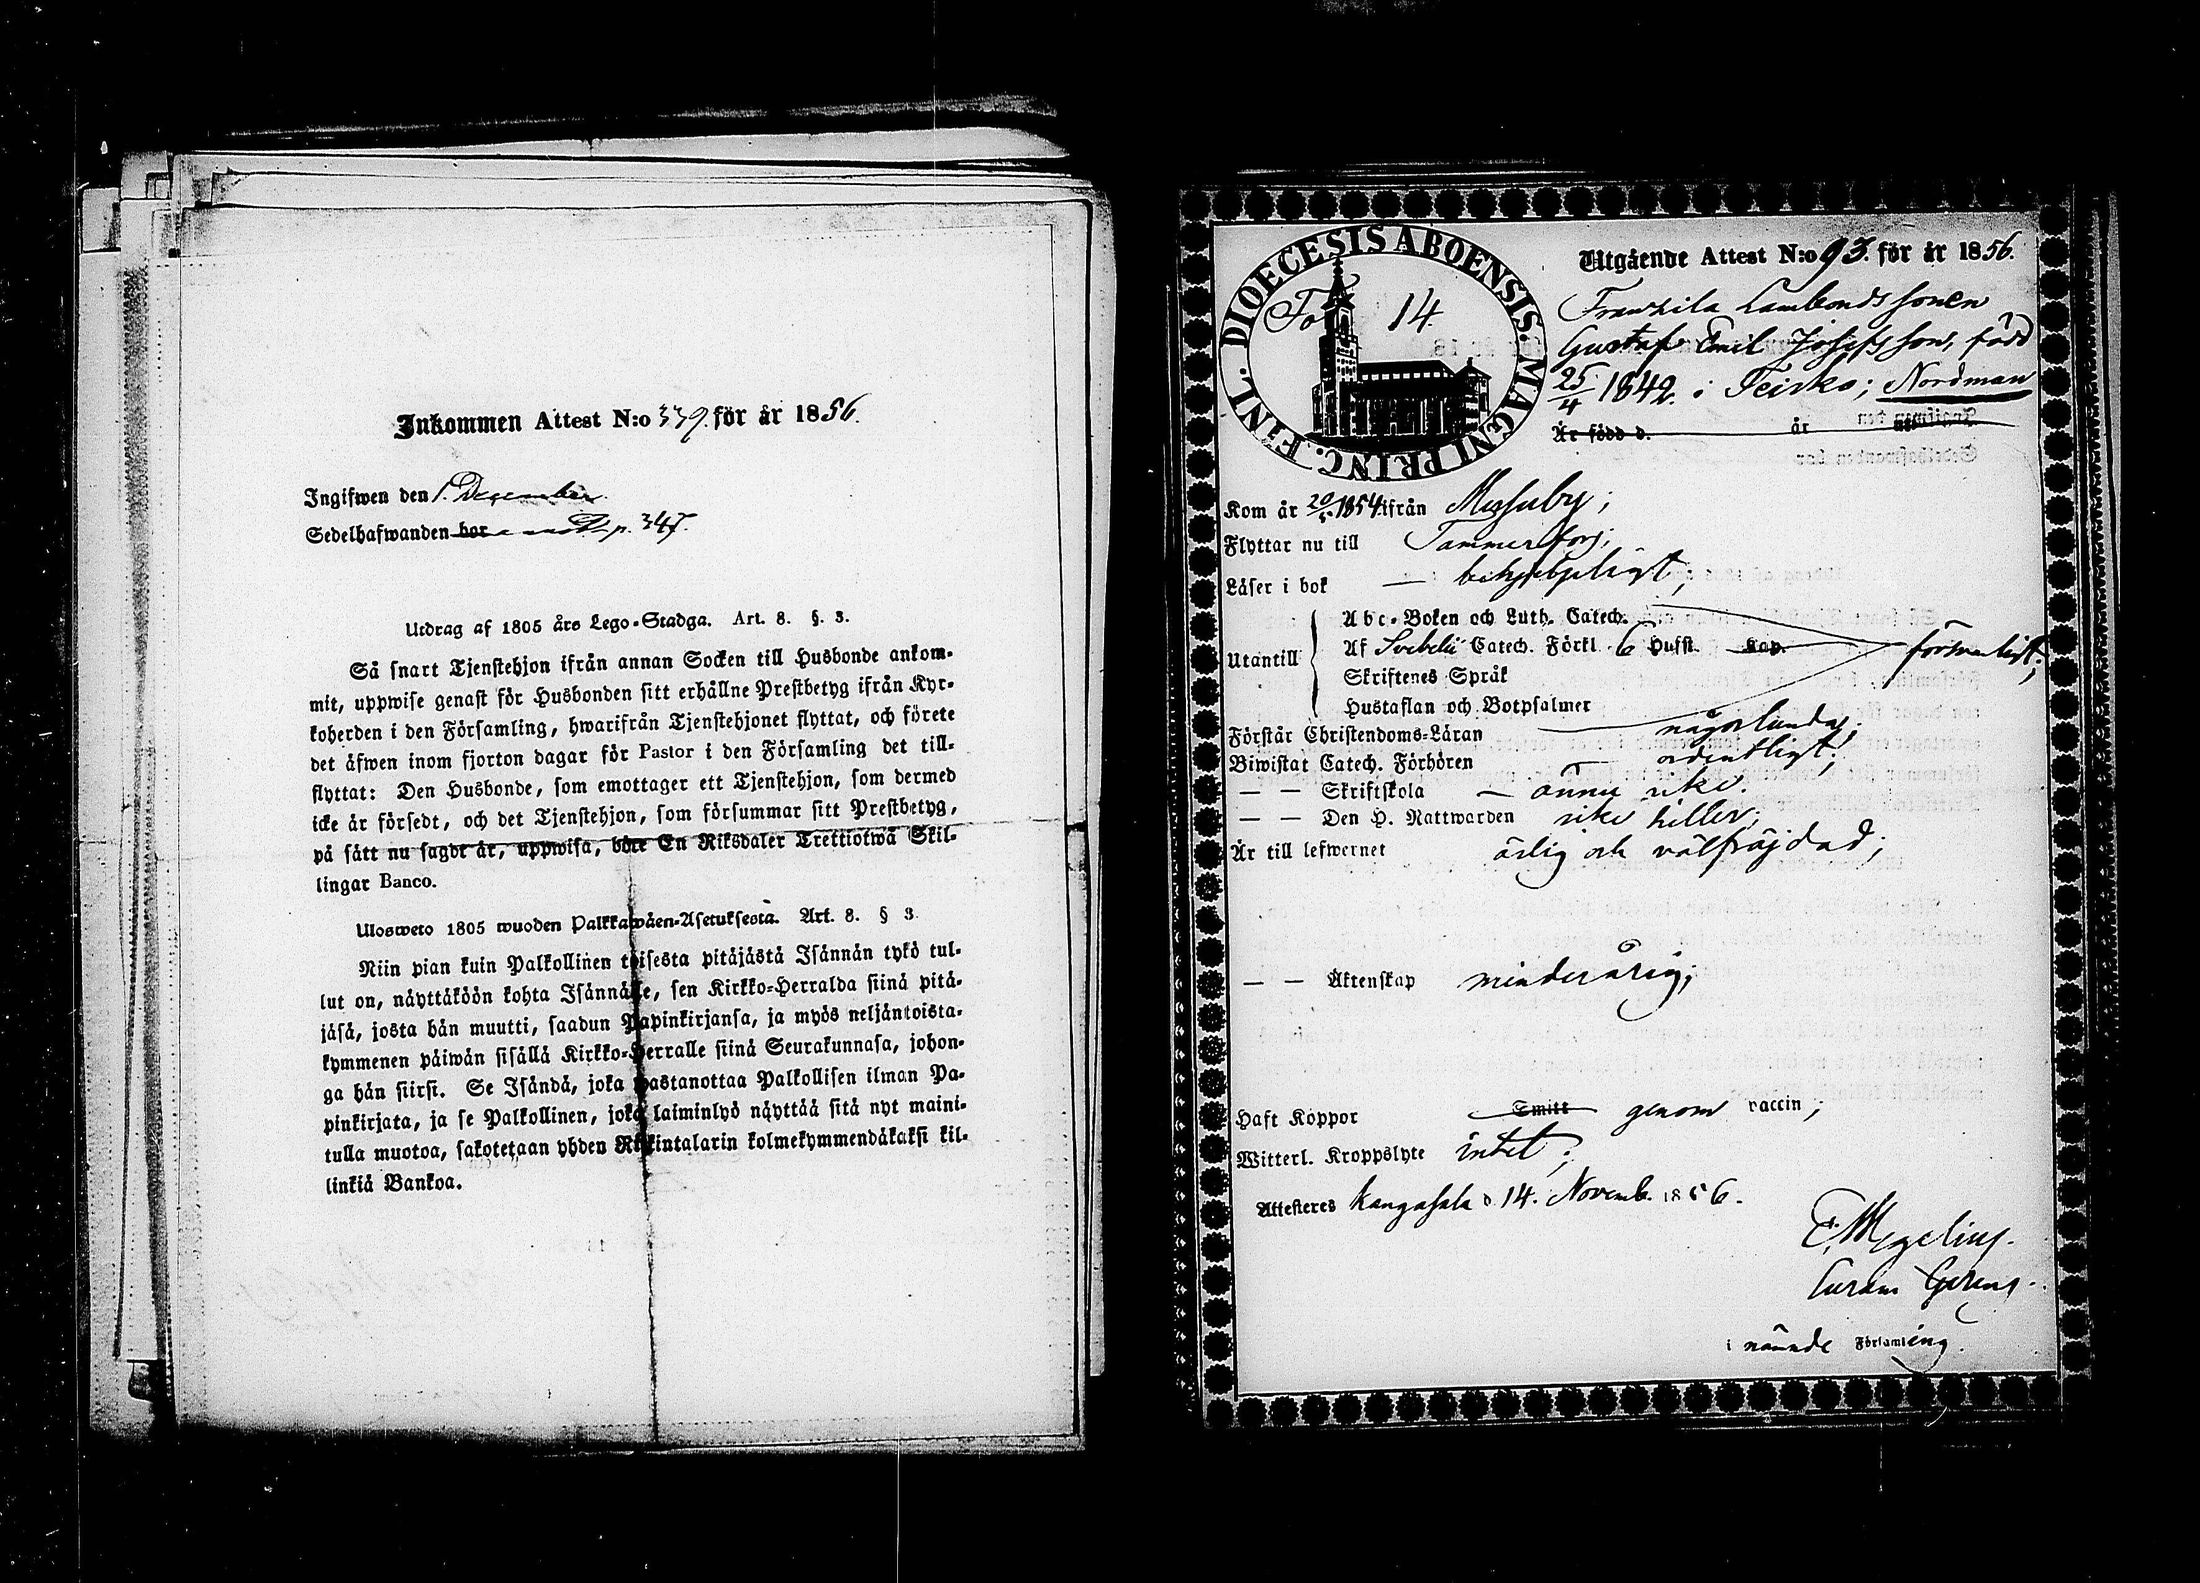 Inkommen Attest N:o 339. för år 1856.
Ingifwen den 1. December
Sedelhafwanden bor p. 347.
Utdrag af 1805 års Lego-Stadga. Art. 8. §. 3.
Så snart Tjenstehjon ifrån annan Socken till Husbonde ankom-
mit, uppwise genast för Husbonden sitt erhållne Prestbetyg ifrån Kyr-
koherden i den Församling, hwarifrån Tjenstehjonet flyttat, och förete
det äfwen inom fjorton dagar för Pastor i den Församling det till-
flyttat: Den Husbonde, som emottager ett Tjenstehjon, som dermed
icke är försedt, och det Tjenstehjon, som försummar sitt Prestbetyg,
på sätt nu sagdt är, uppwisa, böte En Riksdaler Trettiotwå Skil-
lingar Banco.
Ulosweto 1805 wuoden Palkkawäen-Asetuksesta. Art. 8. § 3.
Niin pian kuin Palkollinen toisesta pitäjästä Isännän tykö tul-
lut on, näyttäköön kohta Isännälle, sen Kirkko-Herralda siinä pitä-
jäsä, josta hän muutti, saadun Papinkirjansa, ja myös neljäntoista-
kymmenen päiwän sisällä Kirkko-Herralle siinä Seurakunnasa, johon-
ga hän siirsi. Se Isändä, joka wastanottaa Palkollisen ilman Pa-
pinkirjata, ja se Palkollinen, joka laiminlyö näyttää sitä nyt maini-
tulla muotoa, sakotetaan yhden Riikintalarin kolmekymmendäkaksi kil-
linkiä Bankoa.
DIOECESIS ABOENSIS. MAGNI PRINC. FINL.
Fol 14.
Utgående Attest N:o 93. för år 1856.
Franzila Lambondssonen
Gustaf Emil Josefsson, född
25/4 1842. i Teisko; Nordman
Är född d. år
Kom år 20/5 1854 ifrån Messuby;
Flyttar nu till Tammerfors;
Läser i bok — behjelpligt;
Utantill
Abc-Boken och Luth. Catech.
Af Svebelii Catech. Förkl. 6 Hufst. Kap.
Skriftenes Språk
Hustaflan och Botpsalmer
försvarligt;
Förstår Christendoms-Läran någorlunda;
Biwistat Catech. Förhören — ordentligt;
— — Skriftskola — ännu icke.
— — Den H. Nattwarden icke heller;
Är till lefwernet ärlig och välfräjdad;
— — Äktenskap minderårig;
Haft Koppor Smitt genom vaccin;
Witterl. Kroppslyte intet;
Attesteras Kangasala d 14. Novemb. 1856.
E. Megeling.
Curam Gerens.
i nämnde Församling.